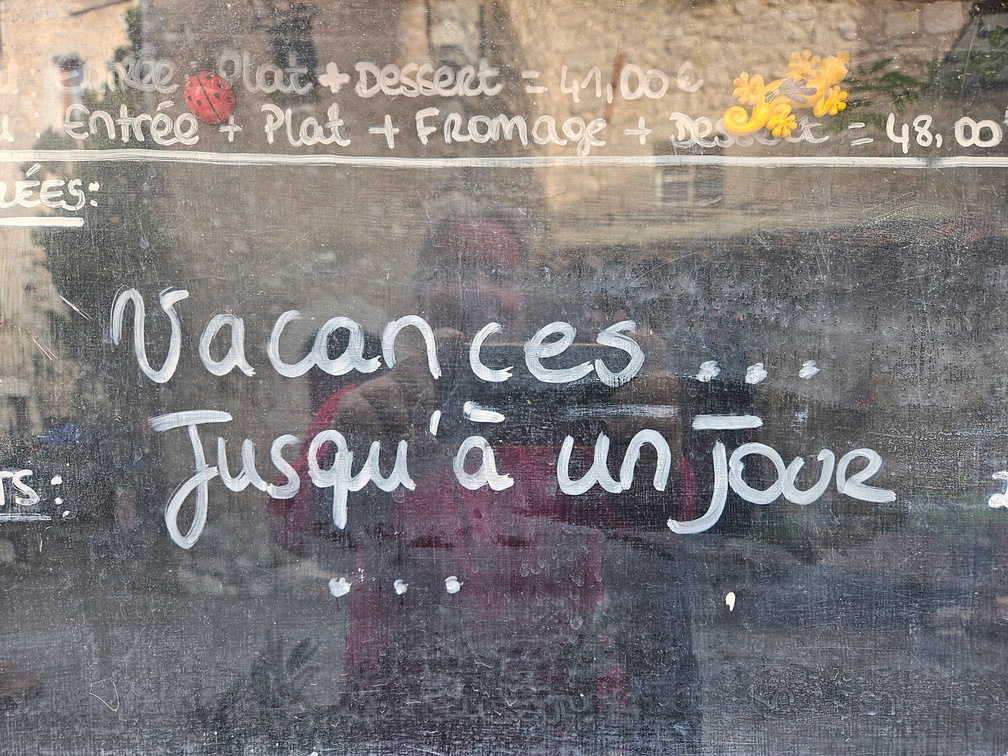 Entrée Plat + Dessert = 41,00 €
Entrée + Plat + Fromage + Dessert = 48,00
ÉES:
Vacances ...
Jusqu'à un jour
TS :
...